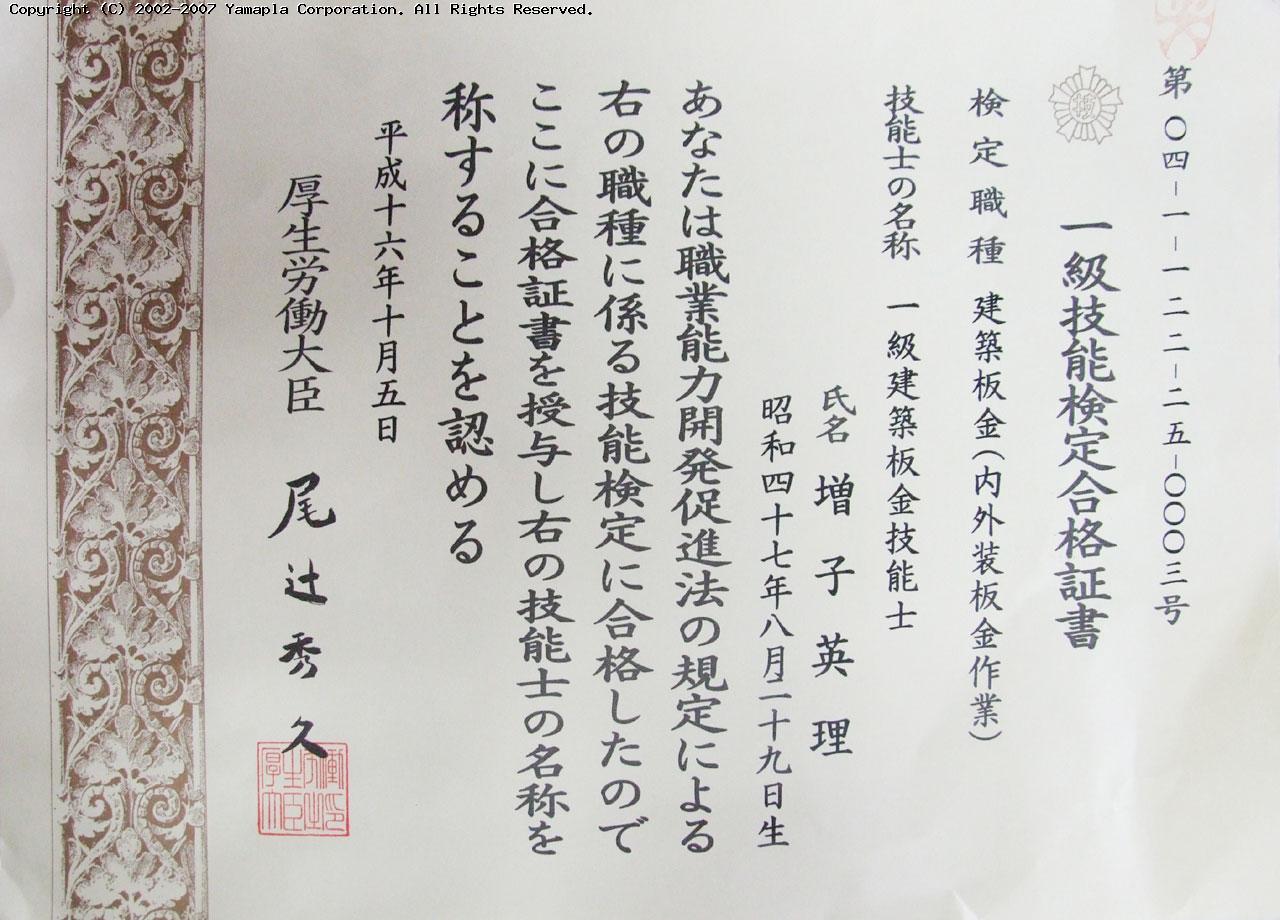 Copyright (C) 2002-2007 Yamapla Corporation. All Rights Reserved.
第〇四-一-一二二-二五-〇〇〇三号
一級技能検定合格証書
検定職種 建築板金(内外装板金作業)
技能士の名称 一級建築板金技能士
氏名 増子英理
昭和四十七年八月二十九日生
あなたは職業能力開発促進法の規定による
右の職種に係る技能検定に合格したので
ここに合格証書を授与し右の技能士の名称を
称することを認める
平成十六年十月五日
厚生労働大臣 尾辻秀久